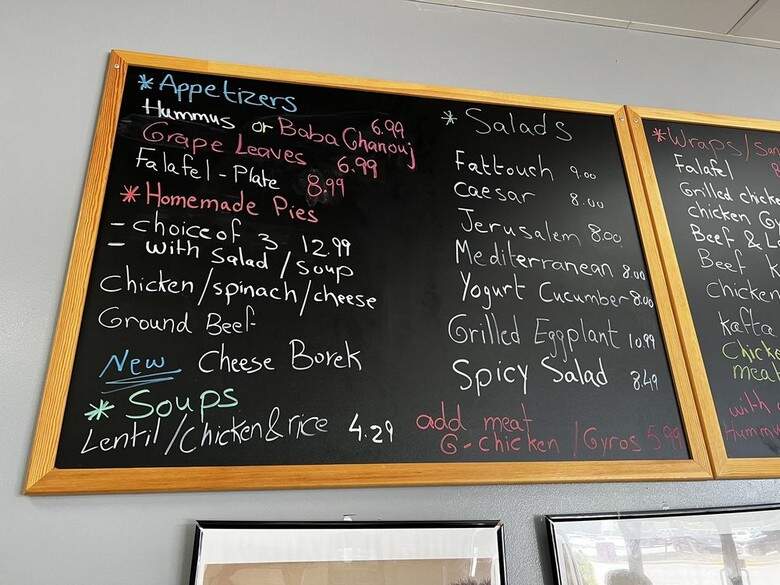 * Appetizers
Hummus or Baba Ghanouj 6.99
Grape Leaves 6.99
Falafel - Plate 8.99
* Homemade Pies
- choice of 3 12.99
- with Salad / Soup
Chicken / spinach / cheese
Ground Beef
New Cheese Borek
* Soups
Lentil / Chicken & rice 4.29
* Salads
Fattouch 9.00
Caesar 8.00
Jerusalem 8.00
Mediterranean 8.00
Yogurt Cucumber 8.00
Grilled Eggplant 10.99
Spicy Salad 8.49
add meat
G-chicken / Gyros 5.99
* Wraps / San
Falafel
Grilled chicke
chicken G
Beef & L
Beef K
Chicken
Kafta
Chicke
meat
with
Hummu